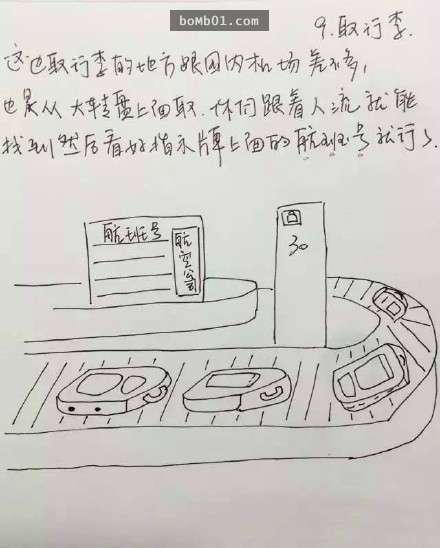 boMb01.com
9.取行李.
这边取行李的地方跟国内机场差不多,
也是从大转盘上面取.你们跟着人流就能
找到然后看好指示牌上面的航班号就行了.
航班号
航空公司
30